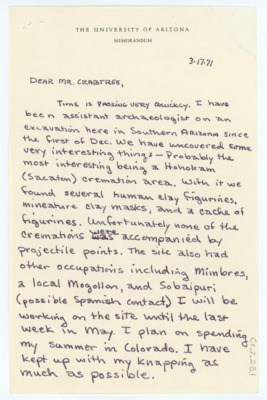 THE UNIVERSITY OF ARIZONA
MEMORANDUM
3-17-71
DEAR MR. CRABTREE,
TIME IS PASSING VERY QUICKLY. I have
been assistant archaeologist on an
excavation here in Southern Arizona since
the first of Dec. We have uncovered some
very interesting things—Probably the
most interesting being a Hohokam
(Sacaton) cremation area. With it we
found several human clay figurines,
mineature clay masks, and a cache of
figurines. Unfortunately none of the
cremations were accompanied by
projectile points. The site also had
other occupations including Mimbres,
a local Mogollon, and Sobaipuri
(possible Spanish contact) I will be
working on the site until the last
week in May. I plan on spending
my summer in Colorado. I have
kept up with my knapping as
much as possible.